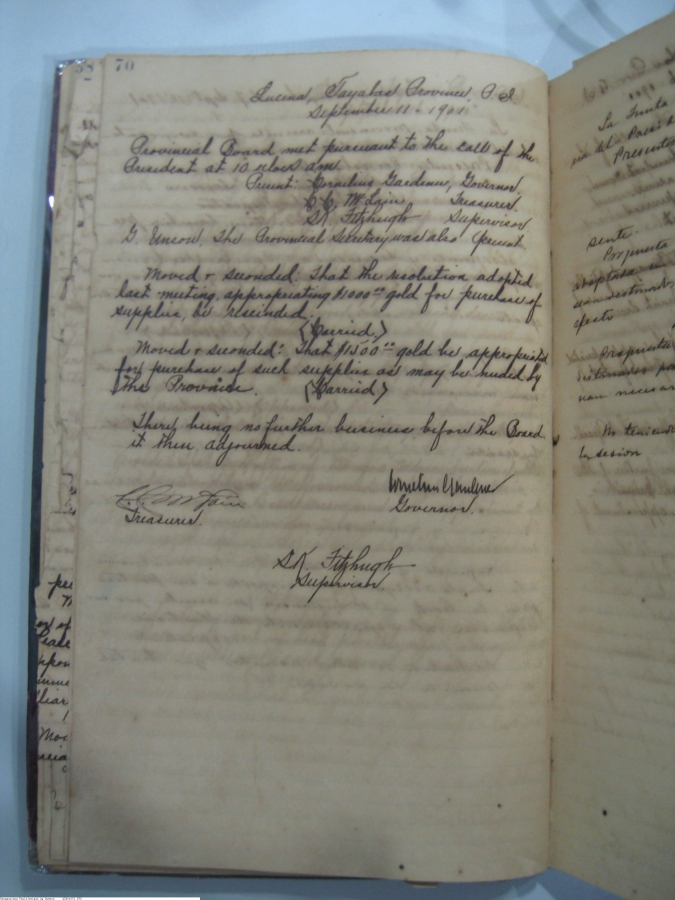 58 70
Lucena, Tayabas Province, P. I.
September 11- 1901
Provincial Board met pursuant to the call of the
President at 10 o'clock a.m.
Present: Cornelius Gardener, Governor
C. C. McLain Treasurer
S.K. Fitzhugh Supervisor
G. Unson, The Provincial Secretary was also present.
Moved & seconded: That the resolution adopted
last meeting, appropriating $1000 00 gold for purchase of
supplies, be rescinded.
(Carried,)
Moved & seconded: That $1500 00 gold be appropriated
for purchase of such supplies as may be needed by
the Province. (Carried)
There being no further business before the Board
it then adjourned.
C. C. McLain
Treasurer.
Cornelius Gardener
Governor.
S.K. Fitzhugh
Supervisor.
La Junta
Presente
sente.
Propuesta
adoptada
efecto
sesion